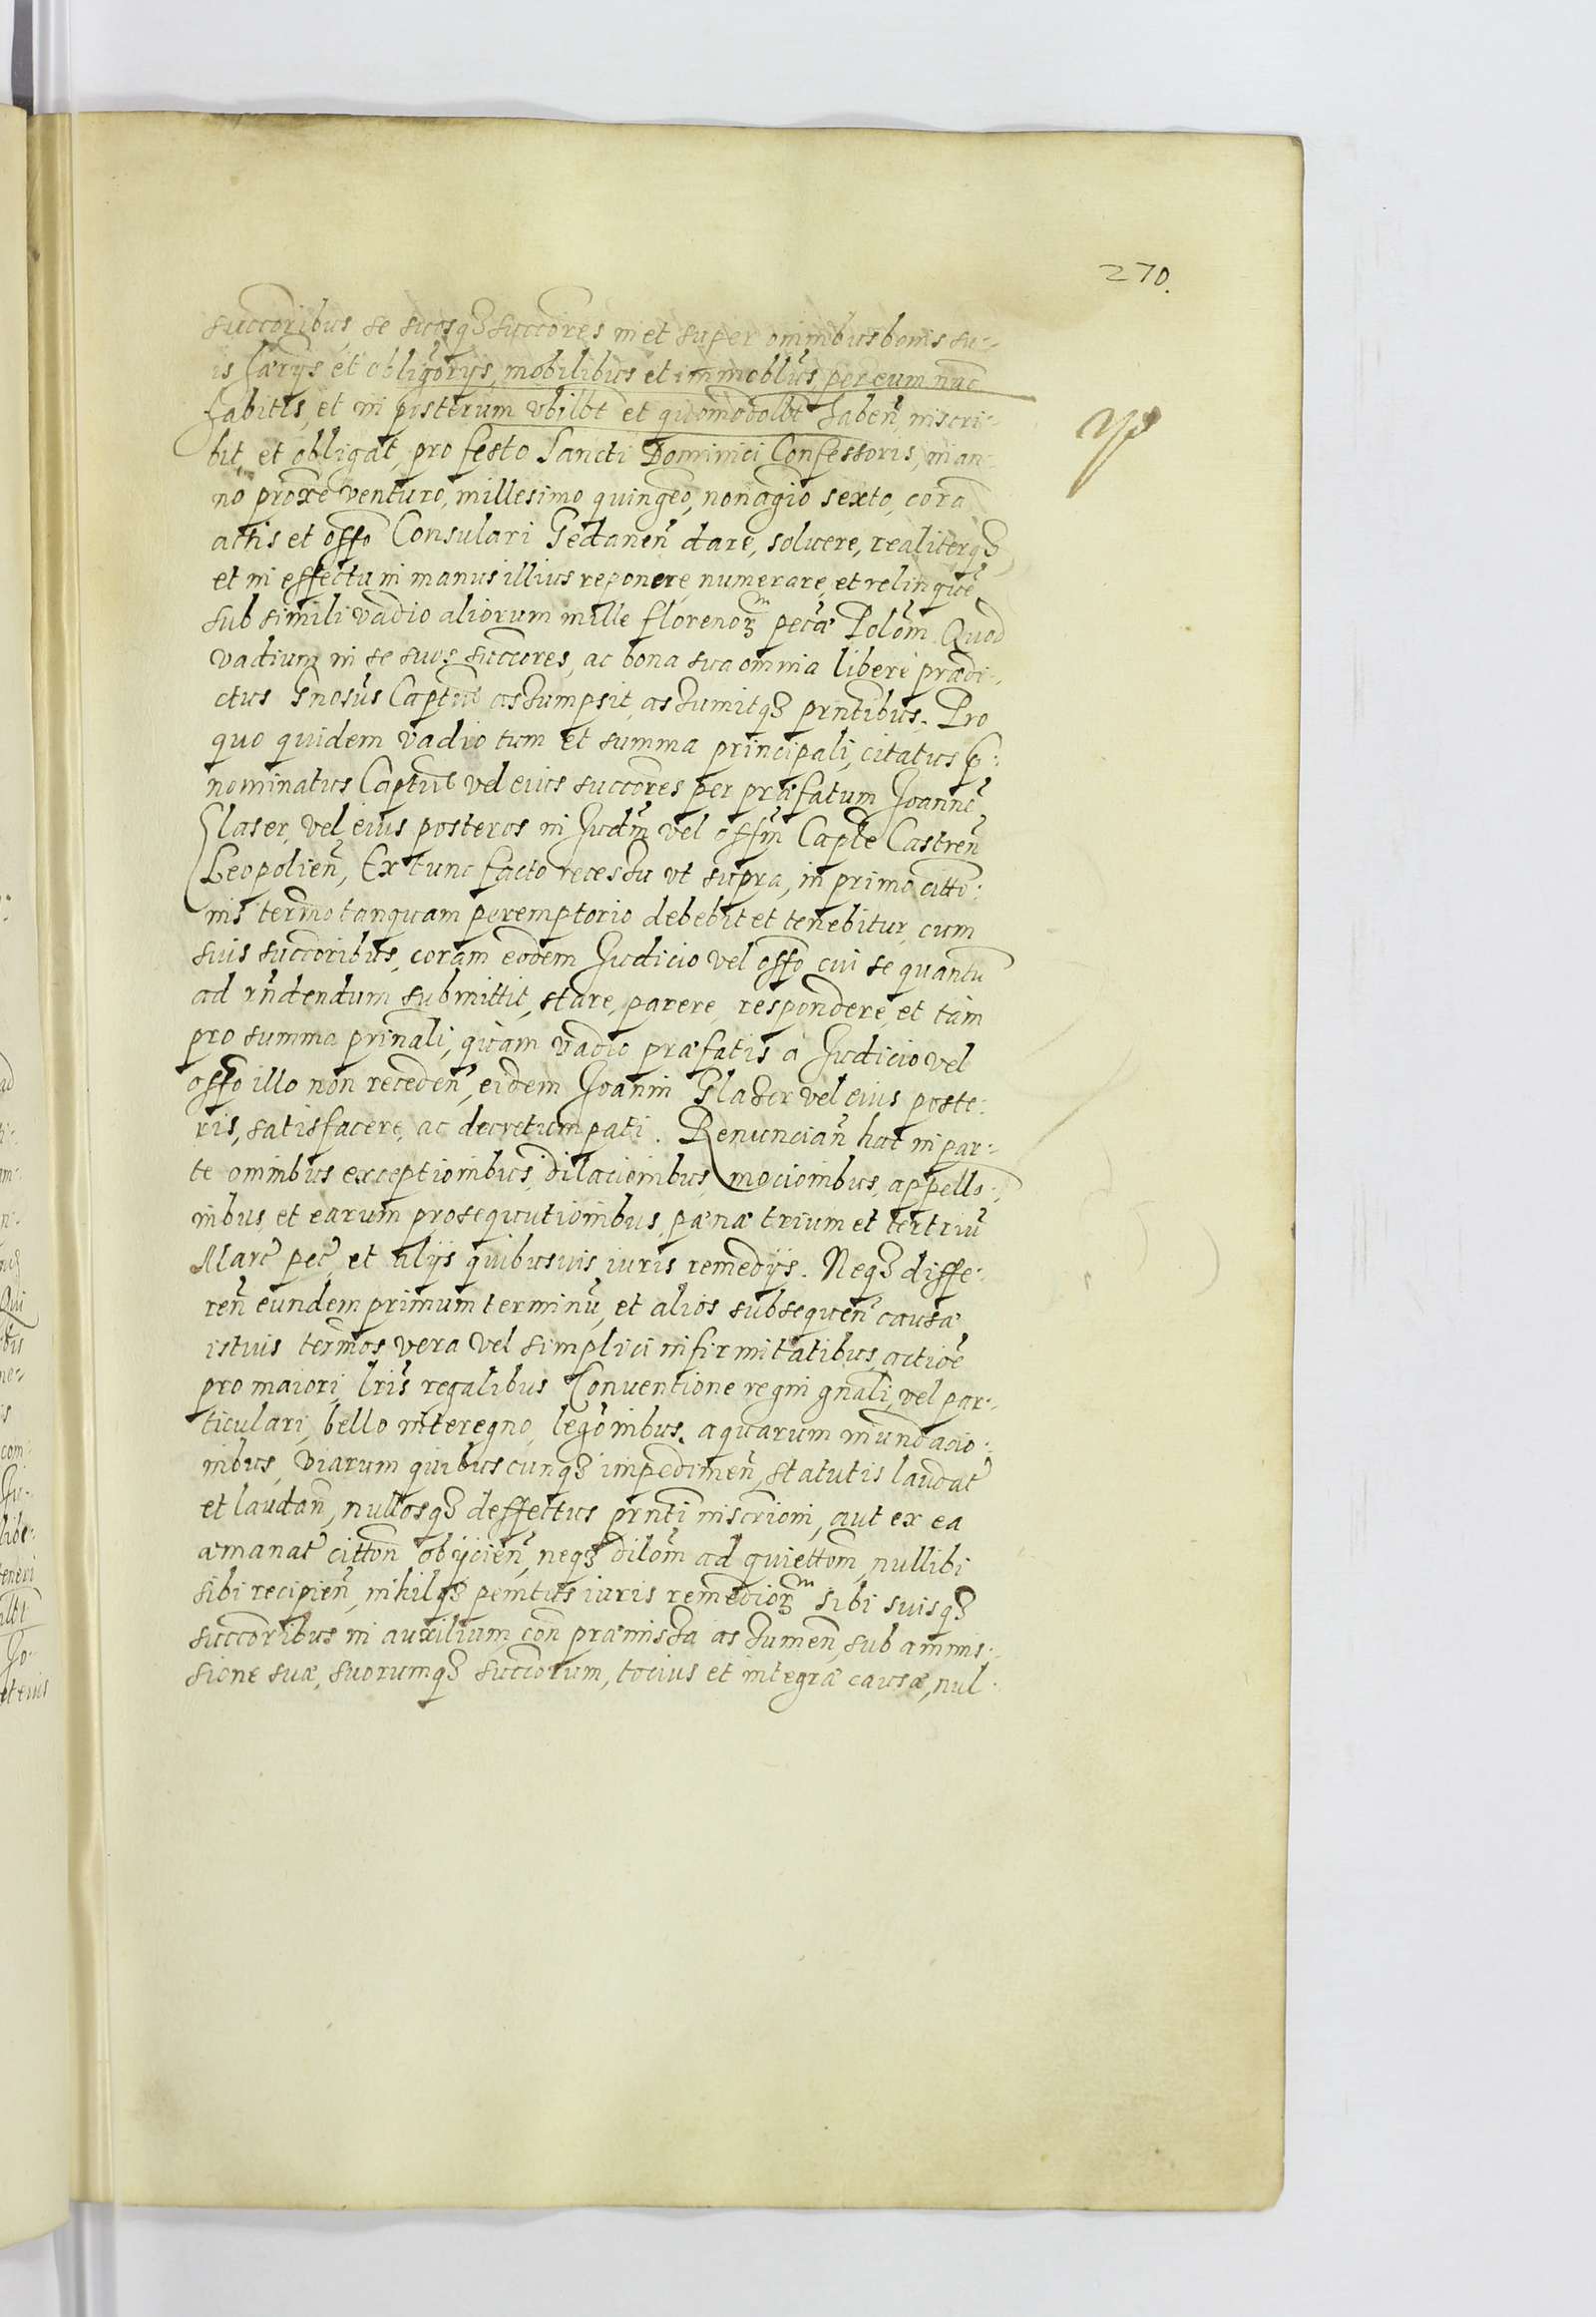 270.
succoribus, se suosq3 succores in et super omnibus bonis su-
is hærijs et obligorijs, mobilibus et immoblibus, per eum nunc
habitis, et in posterum vbilbt et quomodolbt haben, inscri-
bit et obligat, pro festo Sancti Dominici Confessoris, in an-
no proxe venturo, millesimo quingeo, nonagio sexto, cora
actis et offo Consulari Gedanen dare, soluere, realiterq3
et in effectu in manus illius reponere, numerare, et relinque
sub simili vadio aliorum mille florenorum pecæ Polom. Quod
vadium in se suos succores, ac bona sua omnia liberè prædi-
ctus Gnosus Captus assumpsit, assumitq3 prntibus. Pro
quo quidem vadio tum et summa principali, citatus p:
nominatus Captus vel eius succores per præfatum Joanne
Glaser, vel eius posteros in Judm vel offm Capte Castren
Leopolien, Ex tunc facto recessu vt supra, in primo citto:
nis termo tanquam peremptorio debebit et tenebitur, cum
suis succoribus, coram eodem Judicio vel offo cui se quantu
ad rndendum submittit, stare, parere, respondere, et tàm
pro summa prinali, quàm vadio præfatis à Judicio vel
offo illo non receden, eidem Joanni Glaser vel eius poste:
ris, satisfacere, ac decretum pati. Renuncian hac in par:
te omnibus exceptionibus, dilacionibus, mocionibus, appello:
nibus, et earum prosequutionibus, pænæ trium et tertriu
Marc pec, et alijs quibusuis iuris remedijs. Neq3 diffe:
ren eundem primum terminu, et alios subsequen causæ
istius termos vera vel simplici infirmitatibus, actioe
pro maiori, lris regalibus Conuentione regni gnali, vel par:
ticulari, bello interegno, legonibus, aquarum inundacio:
nibus, viarum quibuscunq3 impedimen, statutis laudat
et laudan, nullosq3 deffectus prnti inscrioni, aut ex ea
æmanat citton obijcien, neq3 dilom ad quiettom, nullibi
sibi recipien, nihilq3 penitus iuris remediorum sibi suisq3
succoribus in auxilium con præmissa assumen, sub ammis:
sione suæ, suorumq3 succorum, tocius et integræ causæ, nul-